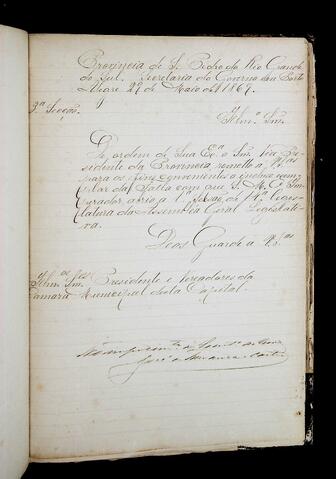 Provincia de S. Pedro do Rio Grande
do Sul. Secretaria do Governo em Porto
Alegre 27 de Maio de 1869.
3ª Secção.
Illmos. Snrs.
De ordem de Sua Exª o Snr. Vice Pre-
sidente da Provincia remetto a VSªs
para os fins convenientes o incluso exem-
plar da Falla com que S. M. O Im-
perador abrio a 1ª Sessão da 14ª Legis-
latura da Assemblea Geral Legislati-
va.
Deos Guarde a VSªs
Illmos. Snrs. Presidente e Vereadores da
Camara Municipal desta Capital.